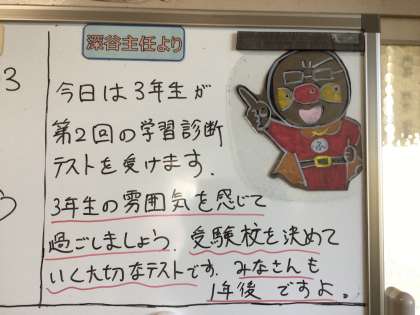 深谷主任より
今日は3年生が
第2回の学習診断
テストを受けます.
3年生の雰囲気を感じて
過ごしましょう. 受験校を決めて
いく大切なテストです. みなさんも
1年後ですよ。
3
ふ